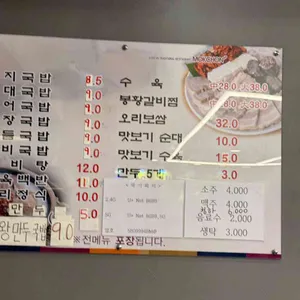 MOKCHON
지국밥 8.5
국밥 9.0
어국밥 9.0
장국밥 9.0
들국밥 9.0
비국밥 9.0
비탕 12.0
육백반 11.0
리정식 10.0
만두 5.0
왕만두국밥 9.0
수육 中28.0 大38.0
봉황갈비찜 中28.0 大38.0
오리보쌈 32.0
맛보기 순대 10.0
맛보기 수육 15.0
만두 5개 3.0
소주 4,000
맥주 4,000
음료수 2,000
생탁 3,000
※전메뉴 포장됩니다.